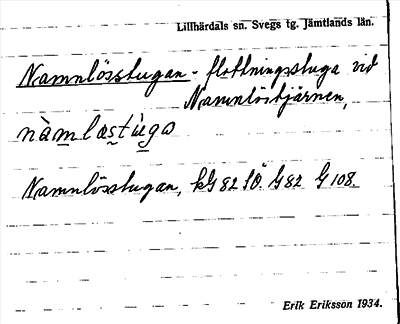 Lillhärdals sn. Svegs tg. Jämtlands län.
Namnlösstugan - flottningsstuga vid
Namnlöstjärnen,
nàmlæstùga
Namnlösstugan, kG 82 SÖ. G82 G 108.
Erik Eriksson 1934.